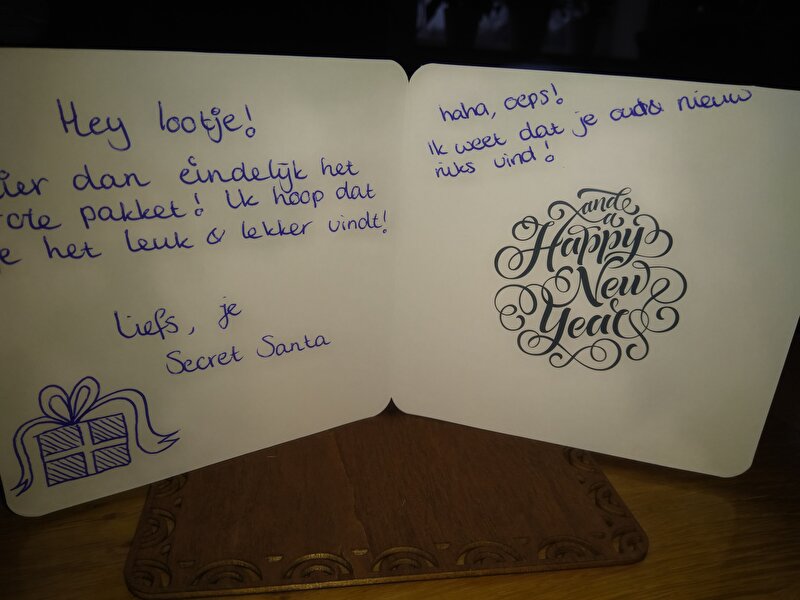 Hey lootje!
ier dan eindelijk het
pakket! Ik hoop dat
e het leuk & lekker vindt!
Liefs, je
Secret Santa
haha, oeps!
Ik weet dat je oud& nieuw
niks vind!
and
a
Happy
New
Year